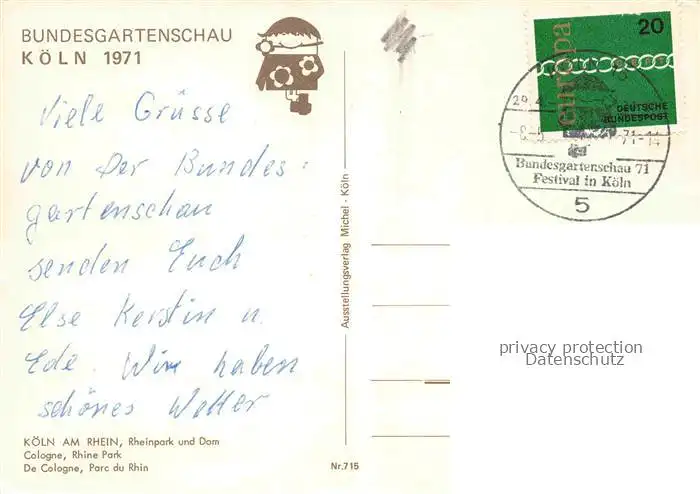 BUNDESGARTENSCHAU
KÖLN 1971
Viele Grüsse
von der Bundes-
gartenschau
senden Euch
Else Kerstin u.
Ede. Wir haben
schönes Wetter
KÖLN AM RHEIN, Rheinpark und Dom
Cologne, Rhine Park
De Cologne, Parc du Rhin
Nr.715
Ausstellungsverlag Michel - Köln
20
europa
DEUTSCHE
BUNDESPOST
29.4.
-8.-5. 71-14
Bundesgartenschau 71
Festival in Köln
5
privacy protection
Datenschutz